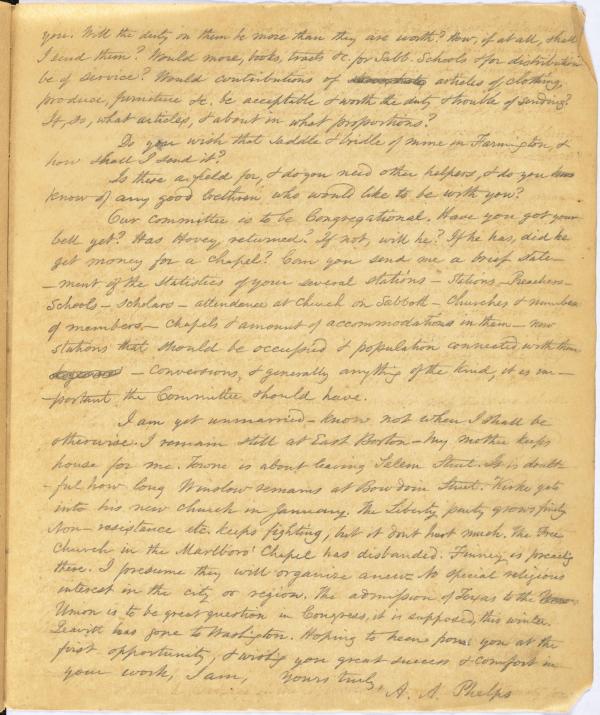 you. Will the duty on them be more than they are worth? How, if at all, shall
I send them? Would more, books, tracts &c. for Sabb. Schools & for distribution
be of service? Would contributions of articles of clothing,
produce, furniture &c. be acceptable & worth the duty & trouble of sending?
If, so, what articles, & about in what proportions?
Do you wish that saddle & bridle of mine in Farmington, &
how shall I send it?
Is there a field for, & do you need other helpers, & do you
know of any good brethren, who would like to be with you?
Our committee is to be Congregational. Have you got your
bell yet? Has Hovey, returned? If not, will he? If he has, did he
get money for a chapel? Can you send me a brief state-
-ment of the Statistics of your several stations - Stations - Preachers -
Schools - scholars - attendence at church on Sabbath - Churches & number
of members - Chapels & amount of accommodations in them - new
stations that should be occupied & population connected with them
- conversions, & generally anything of the kind, it is im-
-portant the Committee should have.
I am yet unmarried - know not when I shall be
otherwise. I remain still at East Boston - My mother keeps
house for me. Towne is about leaving Salem Street. It is doubt-
-ful how long Winslow remains at Bowdoin Street. Kirke gets
into his new church in January. The Liberty party grows finely
Non-resistance etc. keeps fighting, but it dont hurt much. The Free
Church in the Marlboro' Chapel has disbanded. Finney is preaching
there. I presume they will organize anew. No special religious
interest in the city or region. The admission of Texas to the
Union is to be great question in Congress, it is supposed, this winter.
Leavitt has gone to Washington. Hoping to hear from you at the
first opportunity, & wishing you great success & comfort in
your work, I am, Yours truly,
A. A. Phelps